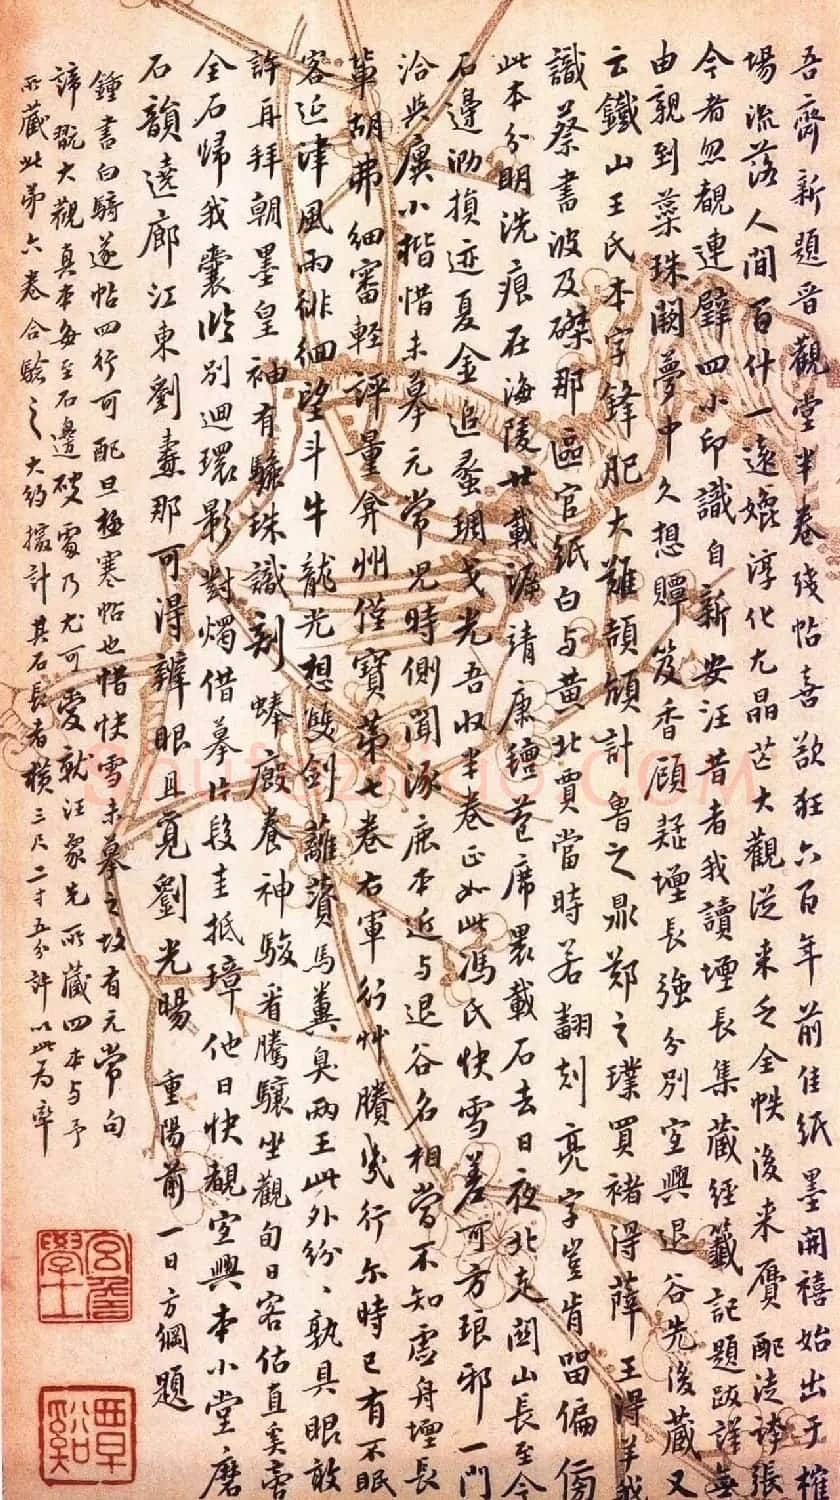 吾齋新題晉觀堂半卷殘帖喜欲狂六百年前佳紙墨開禧始出于榷
場流落人間百什一遠媲淳化尤晶芒大觀從來乏全帙後來贋配徒誇張
今者忽覩連璧四小印識自新安汪昔者我讀堙長集藏經籤記題跋詳無
由親到蘂珠闕夢中久想贉笈香顧疑堙長強分別宜興退谷先後藏又
云鐵山王氏本字鋒肥大難頡頏計魯之鼎鄭之璞買褚得薛王得羊我
識蔡書波及磔那區官紙白与黃北賈當時若翻刻亮字豈肯留偏傍
此本分明洗痕在海陵廿載源請康氊苞席裹載石去日夜北走關山長至今
石邊泐損迹夏金追蠡琱戈光吾收半卷正如此馮氏快雪差可方琅邪一門
洽與廙小楷惜未摹元常兕時側聞涿鹿本近与退谷名相當不知虛舟堙長
輩胡弗細審輕評量弇州僅寶第七卷右軍行艸賸幾行尔時已有不眠
客延津風雨徘徊望斗牛龍光想雙劍蘺蕡馬糞臭兩王此外紛〻孰具眼敢
許再拜朝墨皇袖有驪珠識刻蜯廄養神駿看騰驤坐觀旬日客估直奚啻
全石歸我囊臨別迴環影對燭借摹片段圭抵璋他日快覩宜興本小堂磨
石韻遶廊江東劉燾那可得辦眼且覓劉光暘 重陽前一日方綱題
鍾書白騎遂帖四行可配旦極寒帖也惜快雪未摹之故有元常句
諦翫大觀真本每至石邊破處乃尤可愛就汪氏先所藏四本与予
所藏此第六卷合驗之大約撮計其石長者橫三尺二寸五分許以此為率
覃谿